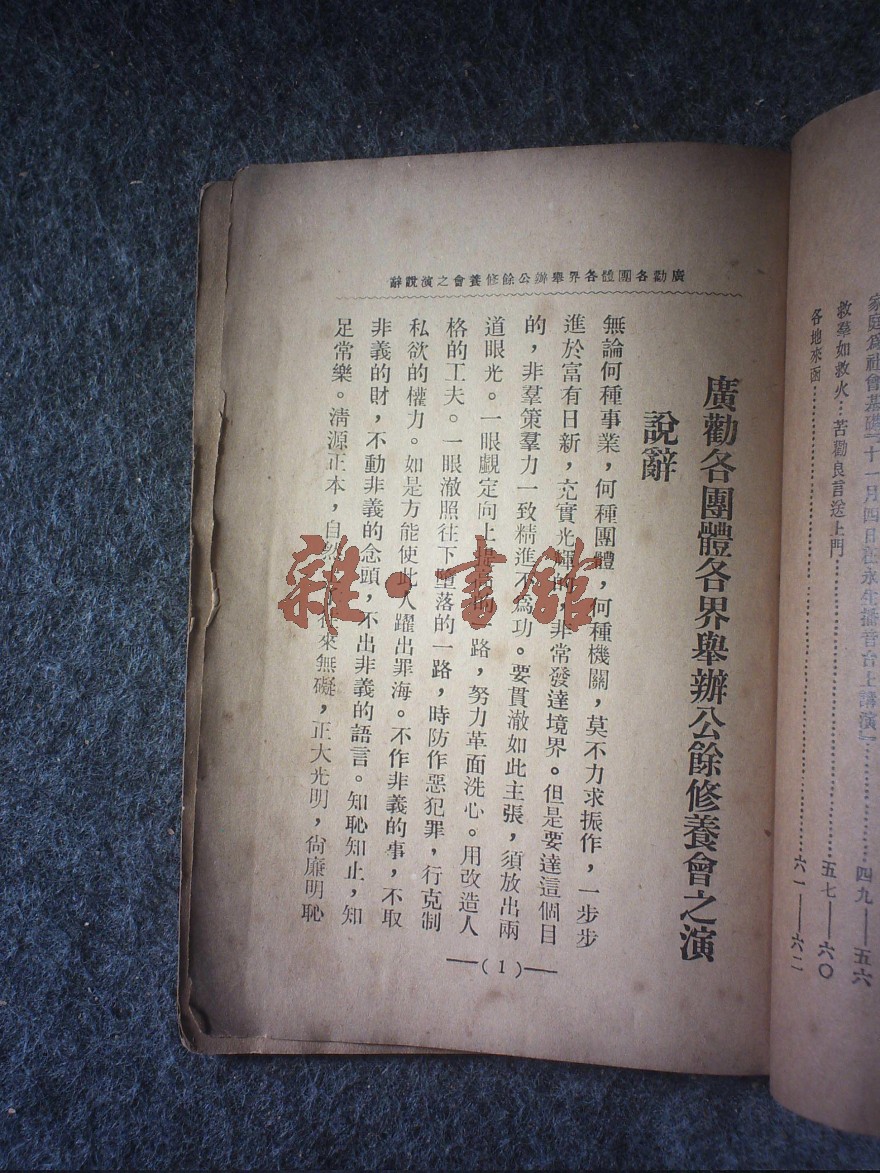 家庭爲社會基礎﹁十一月四日在永生播音台上講演﹂………………四九——五六
救羣如救火…苦勸良言送上門………………五七——六〇
各地來函………………六一——六二
廣勸各團體各界舉辦公餘修養會之演說辭
廣勸各團體各界舉辦公餘修養會之演
說辭
無論何種事業，何種團體，何種機關，莫不力求振作，一步步
進於富有日新，充實光輝的，非常發達境界。但是要達這個目
的，非羣策羣力一致精進不爲功。要貫澈如此主張，須放出兩
道眼光。一眼覷定向上提高的一路，努力革面洗心。用改造人
格的工夫。一眼澈照往下墮落的一路，時防作惡犯罪，行克制
私欲的權力。如是方能使此人躍出罪海。不作非義的事，不取
非義的財，不動非義的念頭，不出非義的語言。知恥知止，知
足常樂。清源正本，自然 來無礙，正大光明，尙廉明恥
—(1)—
雜·書館